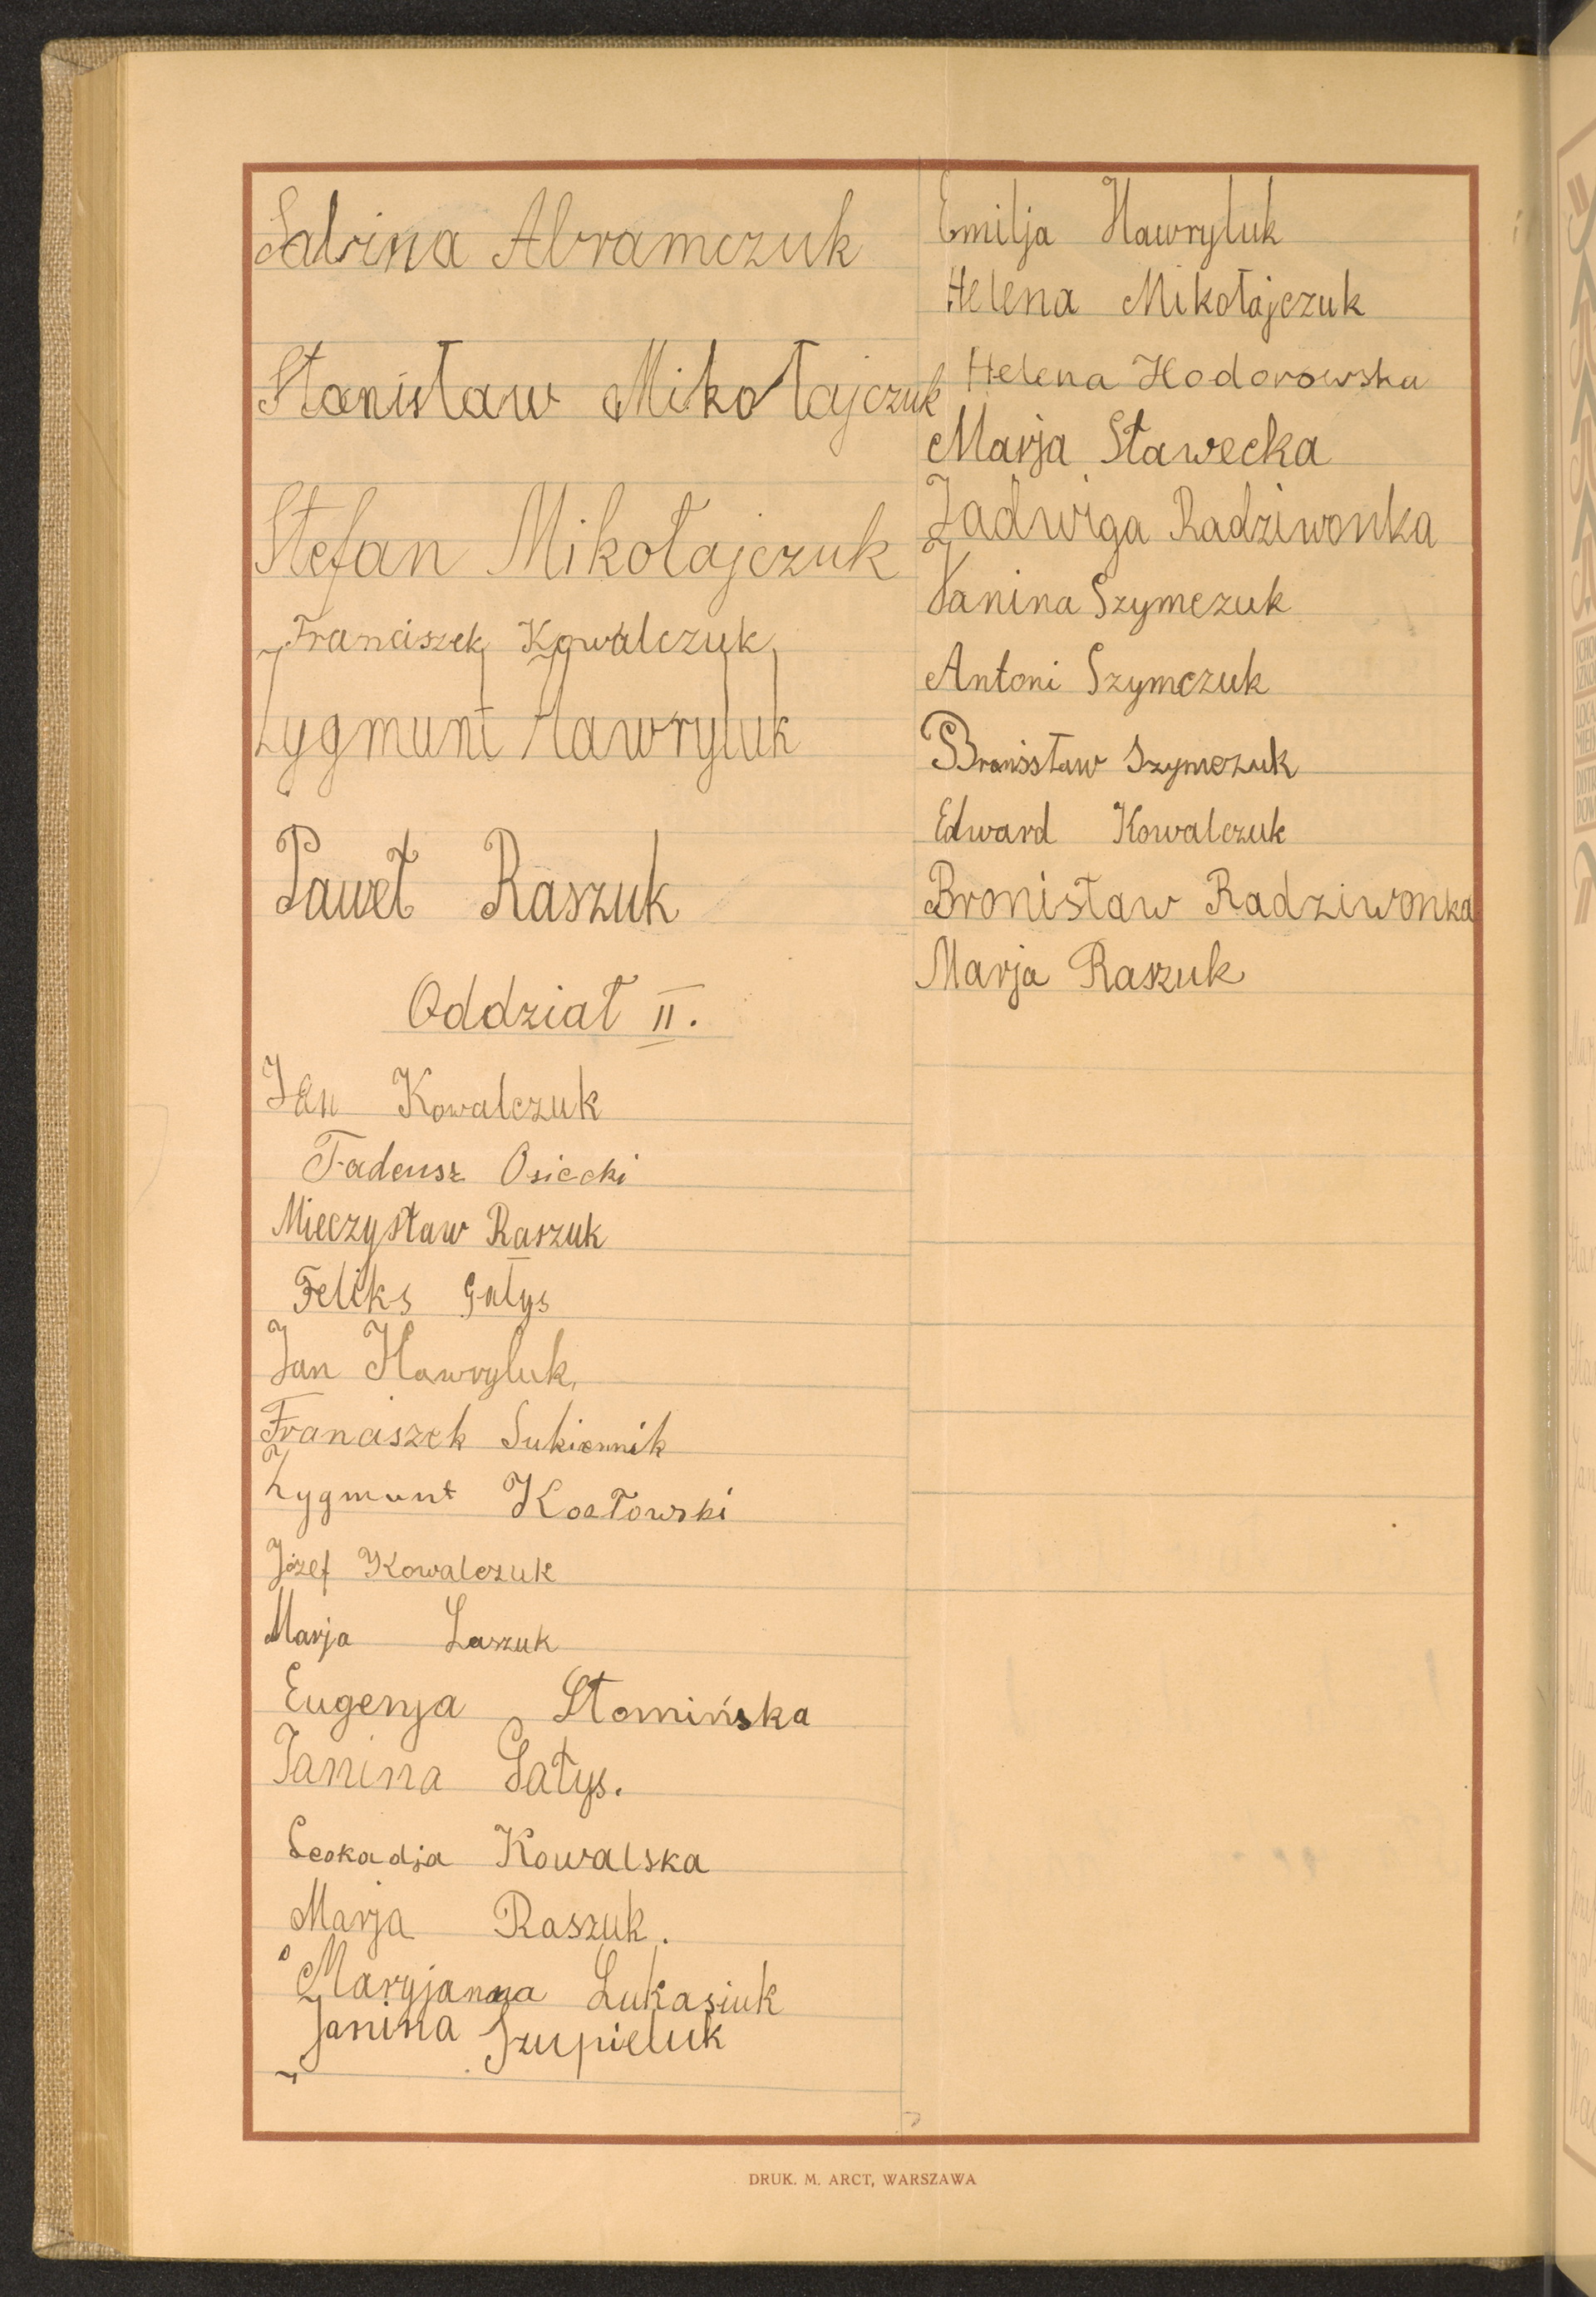 Sabina Abramczuk
Stanisław Mikołajczuk
Stefan Mikołajczuk
Franciszek Kowalczuk
Zygmunt Hawryluk
Paweł Raszuk
Oddział II.
Jan Kowalczuk
Tadeusz Osiecki
Mieczysław Raszuk
Feliks Gałys
Jan Hawryluk
Franciszek Sukiennik
Zygmunt Kozłowski
Józef Kowalczuk
Marja Laszuk
Eugenja Słomińska
Janina Gałys.
Leokadja Kowalska
Marja Raszuk.
Maryjanna Łukasiuk
Janina Szupieluk
Emilja Hawryluk
Helena Mikołajczuk
Helena Hodorowska
Marja Sławecka
Jadwiga Radziwonka
Janina Szymczuk
Antoni Szymczuk
Bronisław Szymczuk
Edward Kowalczuk
Bronisław Radziwonka
Marja Raszuk
DRUK. M. ARCT, WARSZAWA